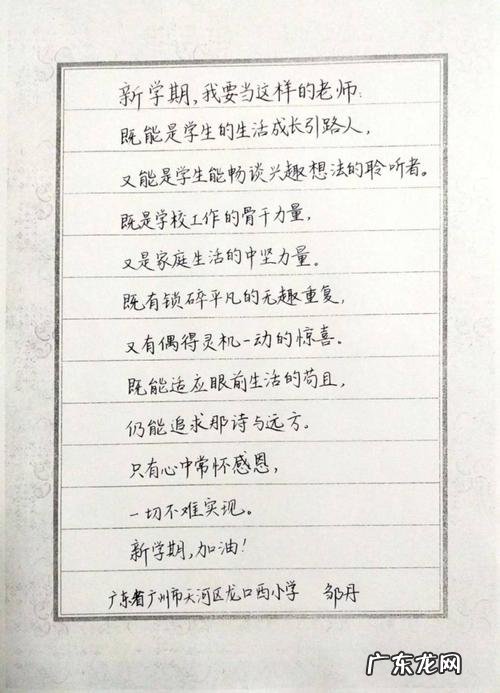 新学期，我要当这样的老师：
既能是学生的生活成长引路人，
又能是学生能畅谈兴趣想法的聆听者。
既是学校工作的骨干力量，
又是家庭生活的中坚力量。
既有锁碎平凡的无趣重复，
又有偶得灵机一动的惊喜。
既能适应眼前生活的苟且，
仍能追求那诗与远方。
只有心中常怀感恩，
一切不难实现。
新学期，加油！
广东省广州市天河区龙口西小学 邹丹
广东龙网